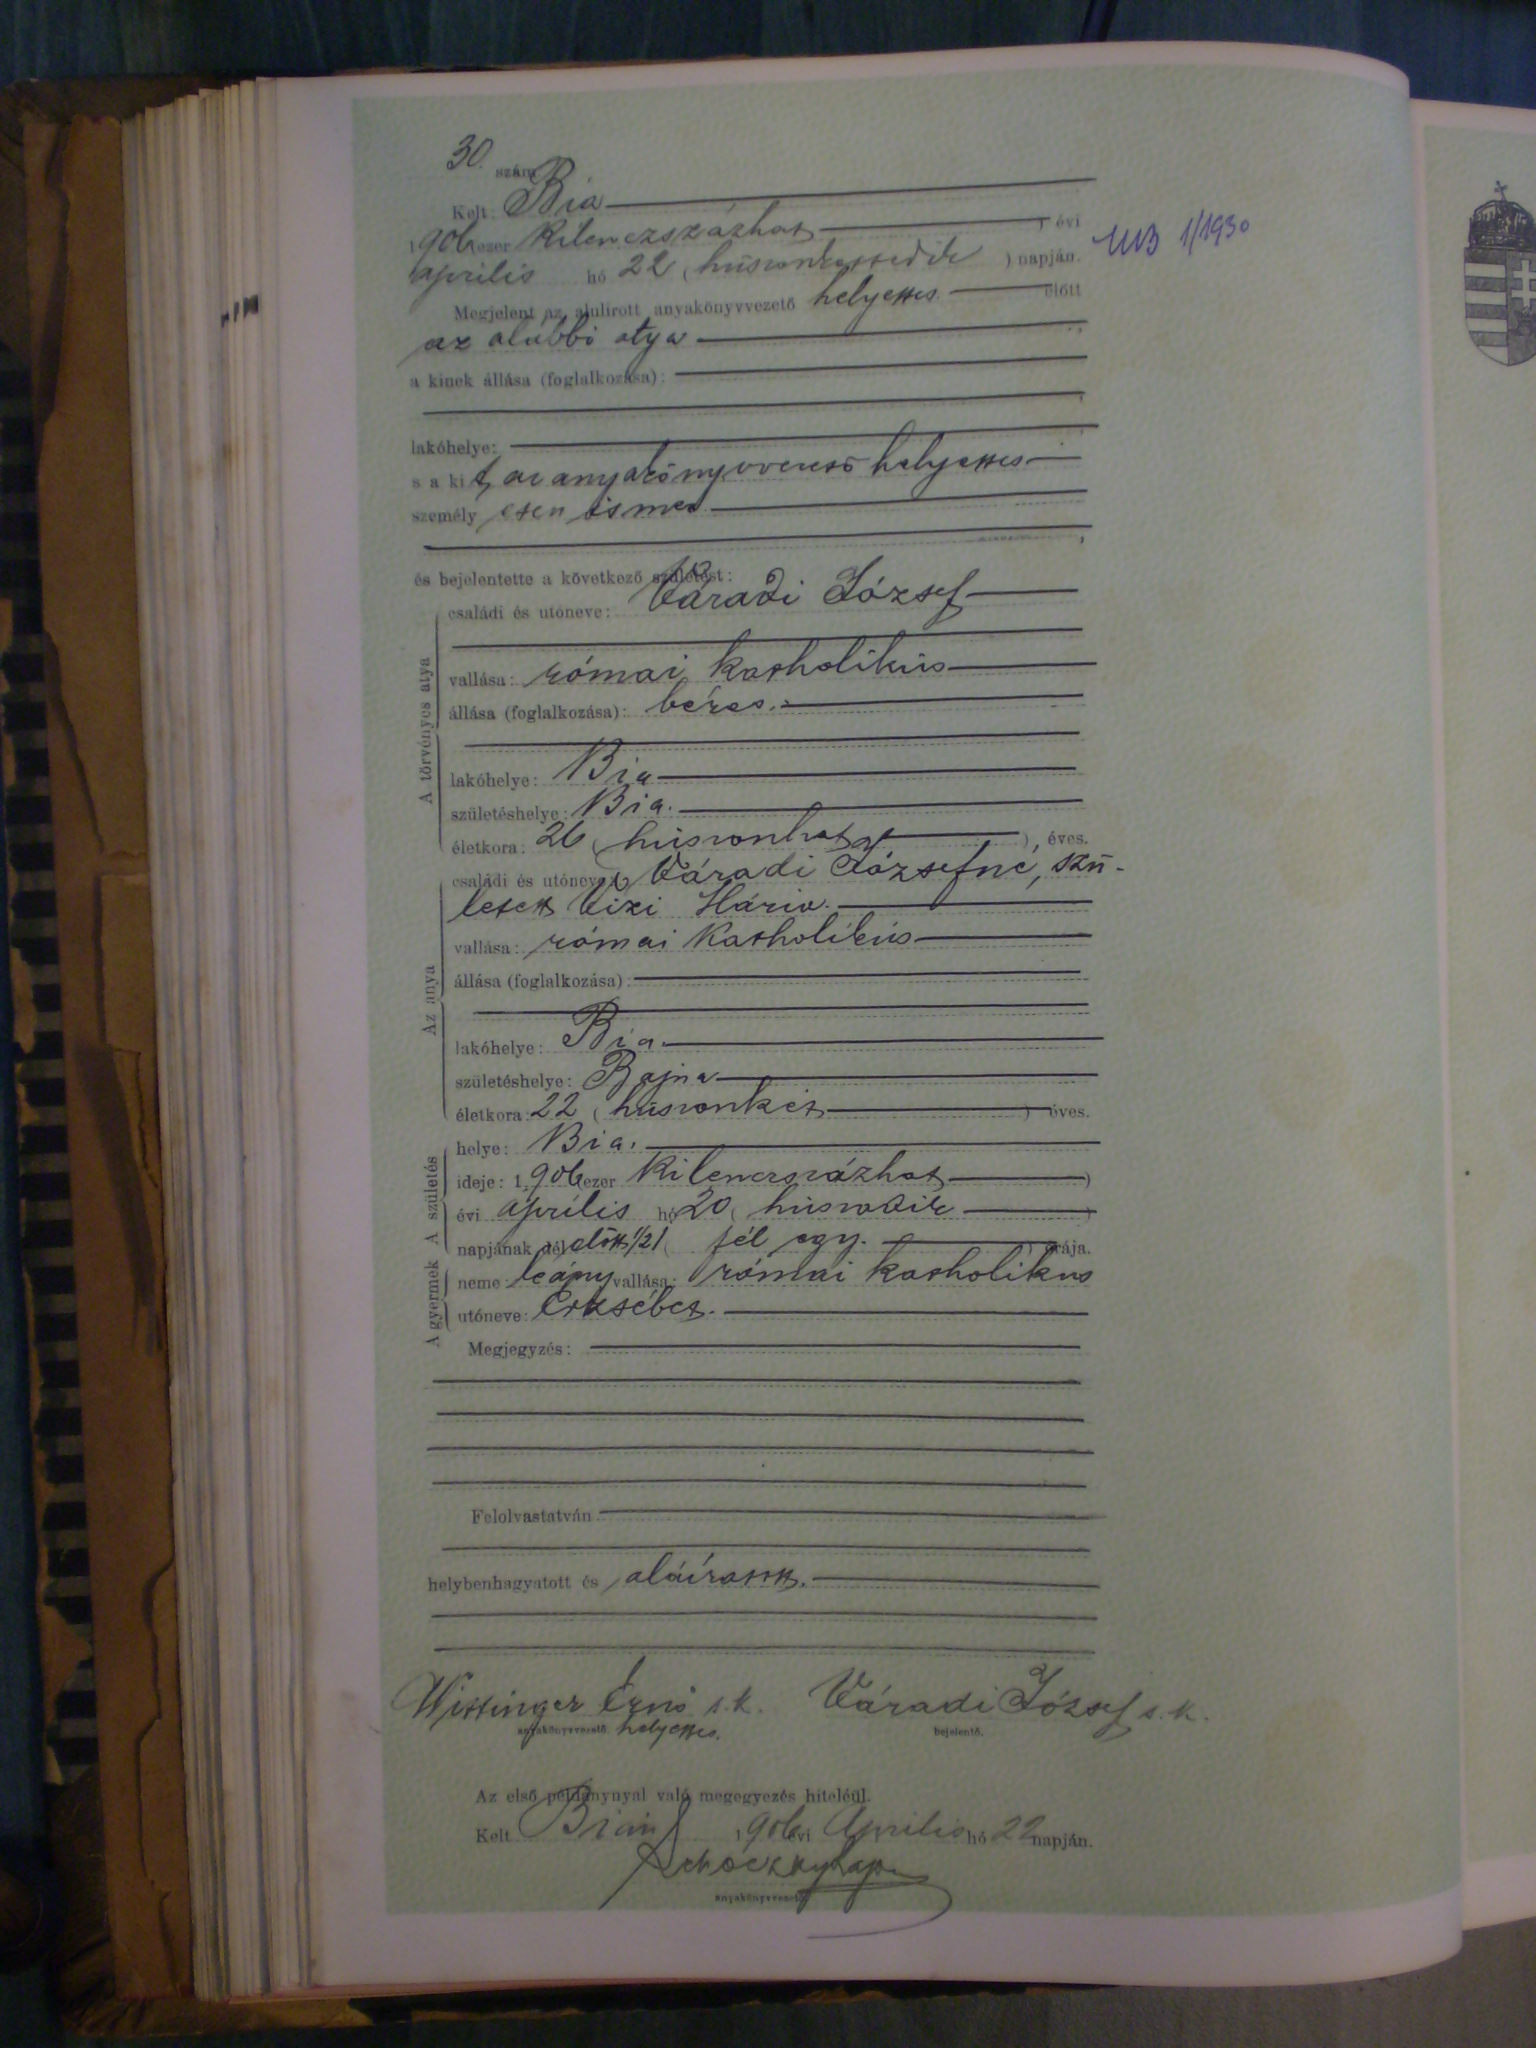 30. szám
Kelt: Bia
1906 (ezer kilenczszázhat ) évi
április hó 22 (huszonkettedik ) napján.
UB 1/1930
Megjelent az alulirott anyakönyvvezető helyettes előtt
az alábbi atya
a kinek állása (foglalkozása):
lakóhelye:
s a kit, az anyakönyvvezető helyettes
személyesen ismer
és bejelentette a következő születést:
A törvényes atya
családi és utóneve: Váradi József
vallása: római katholikus
állása (foglalkozása): béres.
lakóhelye: Bia
születéshelye: Bia.
életkora: 26 (huszonhat ) éves.
Az anya
családi és utóneve: Váradi Józsefné, szü-
letett Vizi Mária.
vallása: római katholikus
állása (foglalkozása)
lakóhelye: Bia.
születéshelye: Bajna
életkora: 22 (huszonkét ) éves.
A születés
helye: Bia.
ideje: 1906 (ezer kilenczszázhat )
évi április hó 20 (huszadik )
napjának délelőtt 1/21 (fél egy. ) órája.
A gyermek
neme: leány vallása: római katholikus
utóneve: Erzsébet.
Megjegyzés:
Felolvastatván
helybenhagyatott és aláíratott.
Wittinger Ernő s.k. Váradi József s.k.
anyakönyvvezető helyettes. bejelentő.
Az első példánynyal való megegyezés hiteléül.
Kelt Bián 1906 évi Április hó 22 napján.
anyakönyvvezető